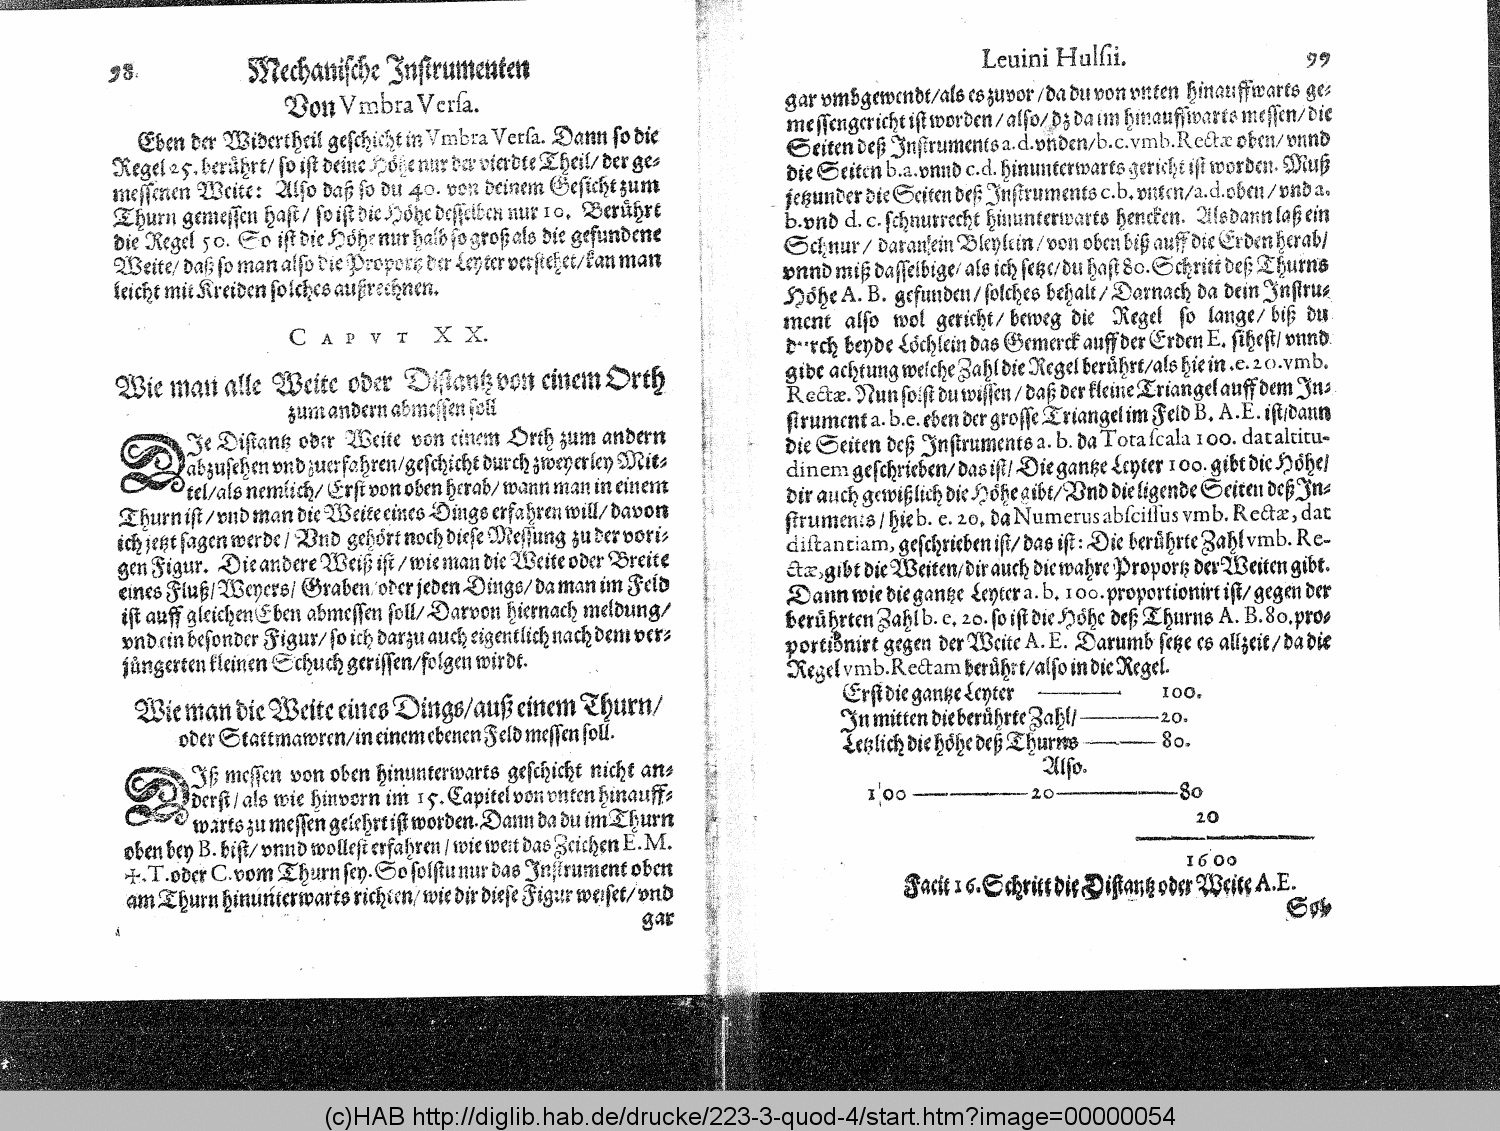 98. Mechanische Instrumenten
Von Vmbra Versa.
Eben der Widertheil geschicht in Vmbra Versa. Dann so die
Regel 25. berührt/ so ist deine Höhe nur der vierdte Theil/ der ge-
messenen Weite: Also daß so du 40. von deinem Gesicht zum
Thurn gemessen hast/ so ist die Höhe desselben nur 10. Berührt
die Regel 50. So ist die Höhe nur halb so groß als die gefundene
Weite/ daß so man also die Proportz der Leyter verstehet/ kan man
leicht mit Kreiden solches außrechnen.
CAPVT XX.
Wie man alle Weite oder Distantz von einem Orth
zum andern abmessen soll
DIe Distantz oder Weite von einem Orth zum andern
abzusehen vnd zuerfahren/ geschicht durch zweyerley Mit-
tel/ als nemlich/ Erst von oben herab/ wann man in einem
Thurn ist/ vnd man die Weite eines Dings erfahren will/ davon
ich jetzt sagen werde/ Vnd gehört noch diese Messung zu der vori-
gen Figur. Die andere Weiß ist/ wie man die Weite oder Breite
eines Fluß/ Weyers/ Graben/ oder jeden Dings/ da man im Feld
ist auff gleichen Eben abmessen soll/ Darvon hiernach meldung/
vnd ein besonder Figur/ so ich darzu auch eigentlich nach dem ver-
jüngerten kleinen Schuch gerissen/ folgen wirdt.
Wie man die Weite eines Dings/ auß einem Thurn/
oder Stattmawren/ in einem ebenen Feld messen soll.
DIß messen von oben hinunterwarts geschicht nicht an-
derst/ als wie hinvorn im 15. Capitel von vnten hinauff-
warts zu messen gelehrt ist worden. Dann da du im Thurn
oben bey B. bist/ vnnd wollest erfahren/ wie weit das Zeichen E. M.
✢. T. oder C. vom Thurn sey. So solstu nur das Instrument oben
am Thurn hinunterwarts richten/ wie dir diese Figur weiset/ vnd
gar
Leuini Hulsii. 99
gar vmbgewendt/ als es zuvor/ da du von vnten hinauffwarts ge-
messen gericht ist worden/ also/ dz da im hinauffwarts messen/ die
Seiten deß Instruments a. d. vnden/ b. c. vmb. Rectæ oben/ vnnd
die Seiten b. a. vnnd c. d. hinunterwarts gericht ist worden. Muß
jetzunder die Seiten deß Instruments c. b. vnten/ a. d. oben/ vnd a.
b. vnd d. c. schnurrecht hinunterwarts hencken. Als dann laß ein
Schnur/ daran ein Bleylein/ von oben biß auff die Erden herab/
vnnd miß dasselbige/ als ich setze/ du hast 80. Schritt deß Thurns
Höhe A. B. gefunden/ solches behalt/ Darnach da dein Instru-
ment also wol gericht/ beweg die Regel so lange/ biß du
durch beyde Löchlein das Gemerck auff der Erden E. sihest/ vnnd
gibe achtung welche Zahl die Regel berührt/ als hie in. e. 20. vmb.
Rectæ. Nun solst du wissen/ daß der kleine Triangel auff dem In-
strument a. b. e. eben der grosse Triangel im Feld B. A. E. ist/ dann
die Seiten deß Instruments a. b. da Tota scala 100. dat altitu-
dinem geschrieben/ das ist/ Die gantze Leyter 100. gibt die Höhe/
dir auch gewißlich die Höhe gibt/ Vnd die ligende Seiten deß In-
struments/ hie b. e. 20. da Numerus abscissus vmb. Rectæ, dat
distantiam, geschrieben ist/ das ist: Die berührte Zahl vmb. Re-
ctæ, gibt die Weiten/ dir auch die wahre Proportz der Weiten gibt.
Dann wie die gantze Leyter a. b. 100. proportionirt ist/ gegen der
berührten Zahl b. e. 20. so ist die Höhe deß Thurns A. B. 80. pro-
portionirt gegen der Weite A. E. Darumb setze es allzeit/ da die
Regel vmb. Rectam berührt/ also in die Regel.
Erst die gantze Leyter ——— 100.
In mitten die berührte Zahl/ ——— 20.
Letzlich die höhe deß Thurns ——— 80.
Also.
100 ——— 20 ——— 80
20
1600
Facit 16. Schritt die Distantz oder Weite A. E.